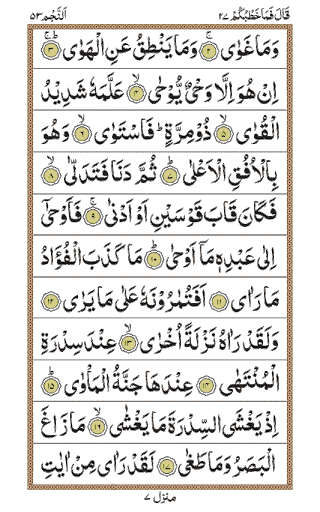 قَالَ فَمَا خَطْبُكُمْ ٢٧ اَلنَّجْم ٥٣
وَمَا غَوٰی ۚ﴿٢﴾ وَمَا یَنْطِقُ عَنِ الْهَوٰی ؕ﴿٣﴾
اِنْ هُوَ اِلَّا وَحْیٌ یُّوْحٰی ۙ﴿٤﴾ عَلَّمَهٗ شَدِیْدُ
الْقُوٰی ۙ﴿٥﴾ ذُوْ مِرَّةٍ ؕ فَاسْتَوٰی ۙ﴿٦﴾ وَهُوَ
بِالْاُفُقِ الْاَعْلٰی ؕ﴿٧﴾ ثُمَّ دَنَا فَتَدَلّٰی ۙ﴿٨﴾
فَكَانَ قَابَ قَوْسَیْنِ اَوْ اَدْنٰی ۚ﴿٩﴾ فَاَوْحٰۤی
اِلٰی عَبْدِهٖ مَاۤ اَوْحٰی ؕ﴿١٠﴾ مَا كَذَبَ الْفُؤَادُ
مَا رَاٰی ﴿١١﴾ اَفَتُمٰرُوْنَهٗ عَلٰی مَا یَرٰی ﴿١٢﴾
وَلَقَدْ رَاٰهُ نَزْلَةً اُخْرٰی ۙ﴿١٣﴾ عِنْدَ سِدْرَةِ
الْمُنْتَهٰی ﴿١٤﴾ عِنْدَهَا جَنَّةُ الْمَاْوٰی ؕ﴿١٥﴾
اِذْ یَغْشَی السِّدْرَةَ مَا یَغْشٰی ۙ﴿١٦﴾ مَا زَاغَ
الْبَصَرُ وَمَا طَغٰی ﴿١٧﴾ لَقَدْ رَاٰی مِنْ اٰیٰتِ
منزل ٧